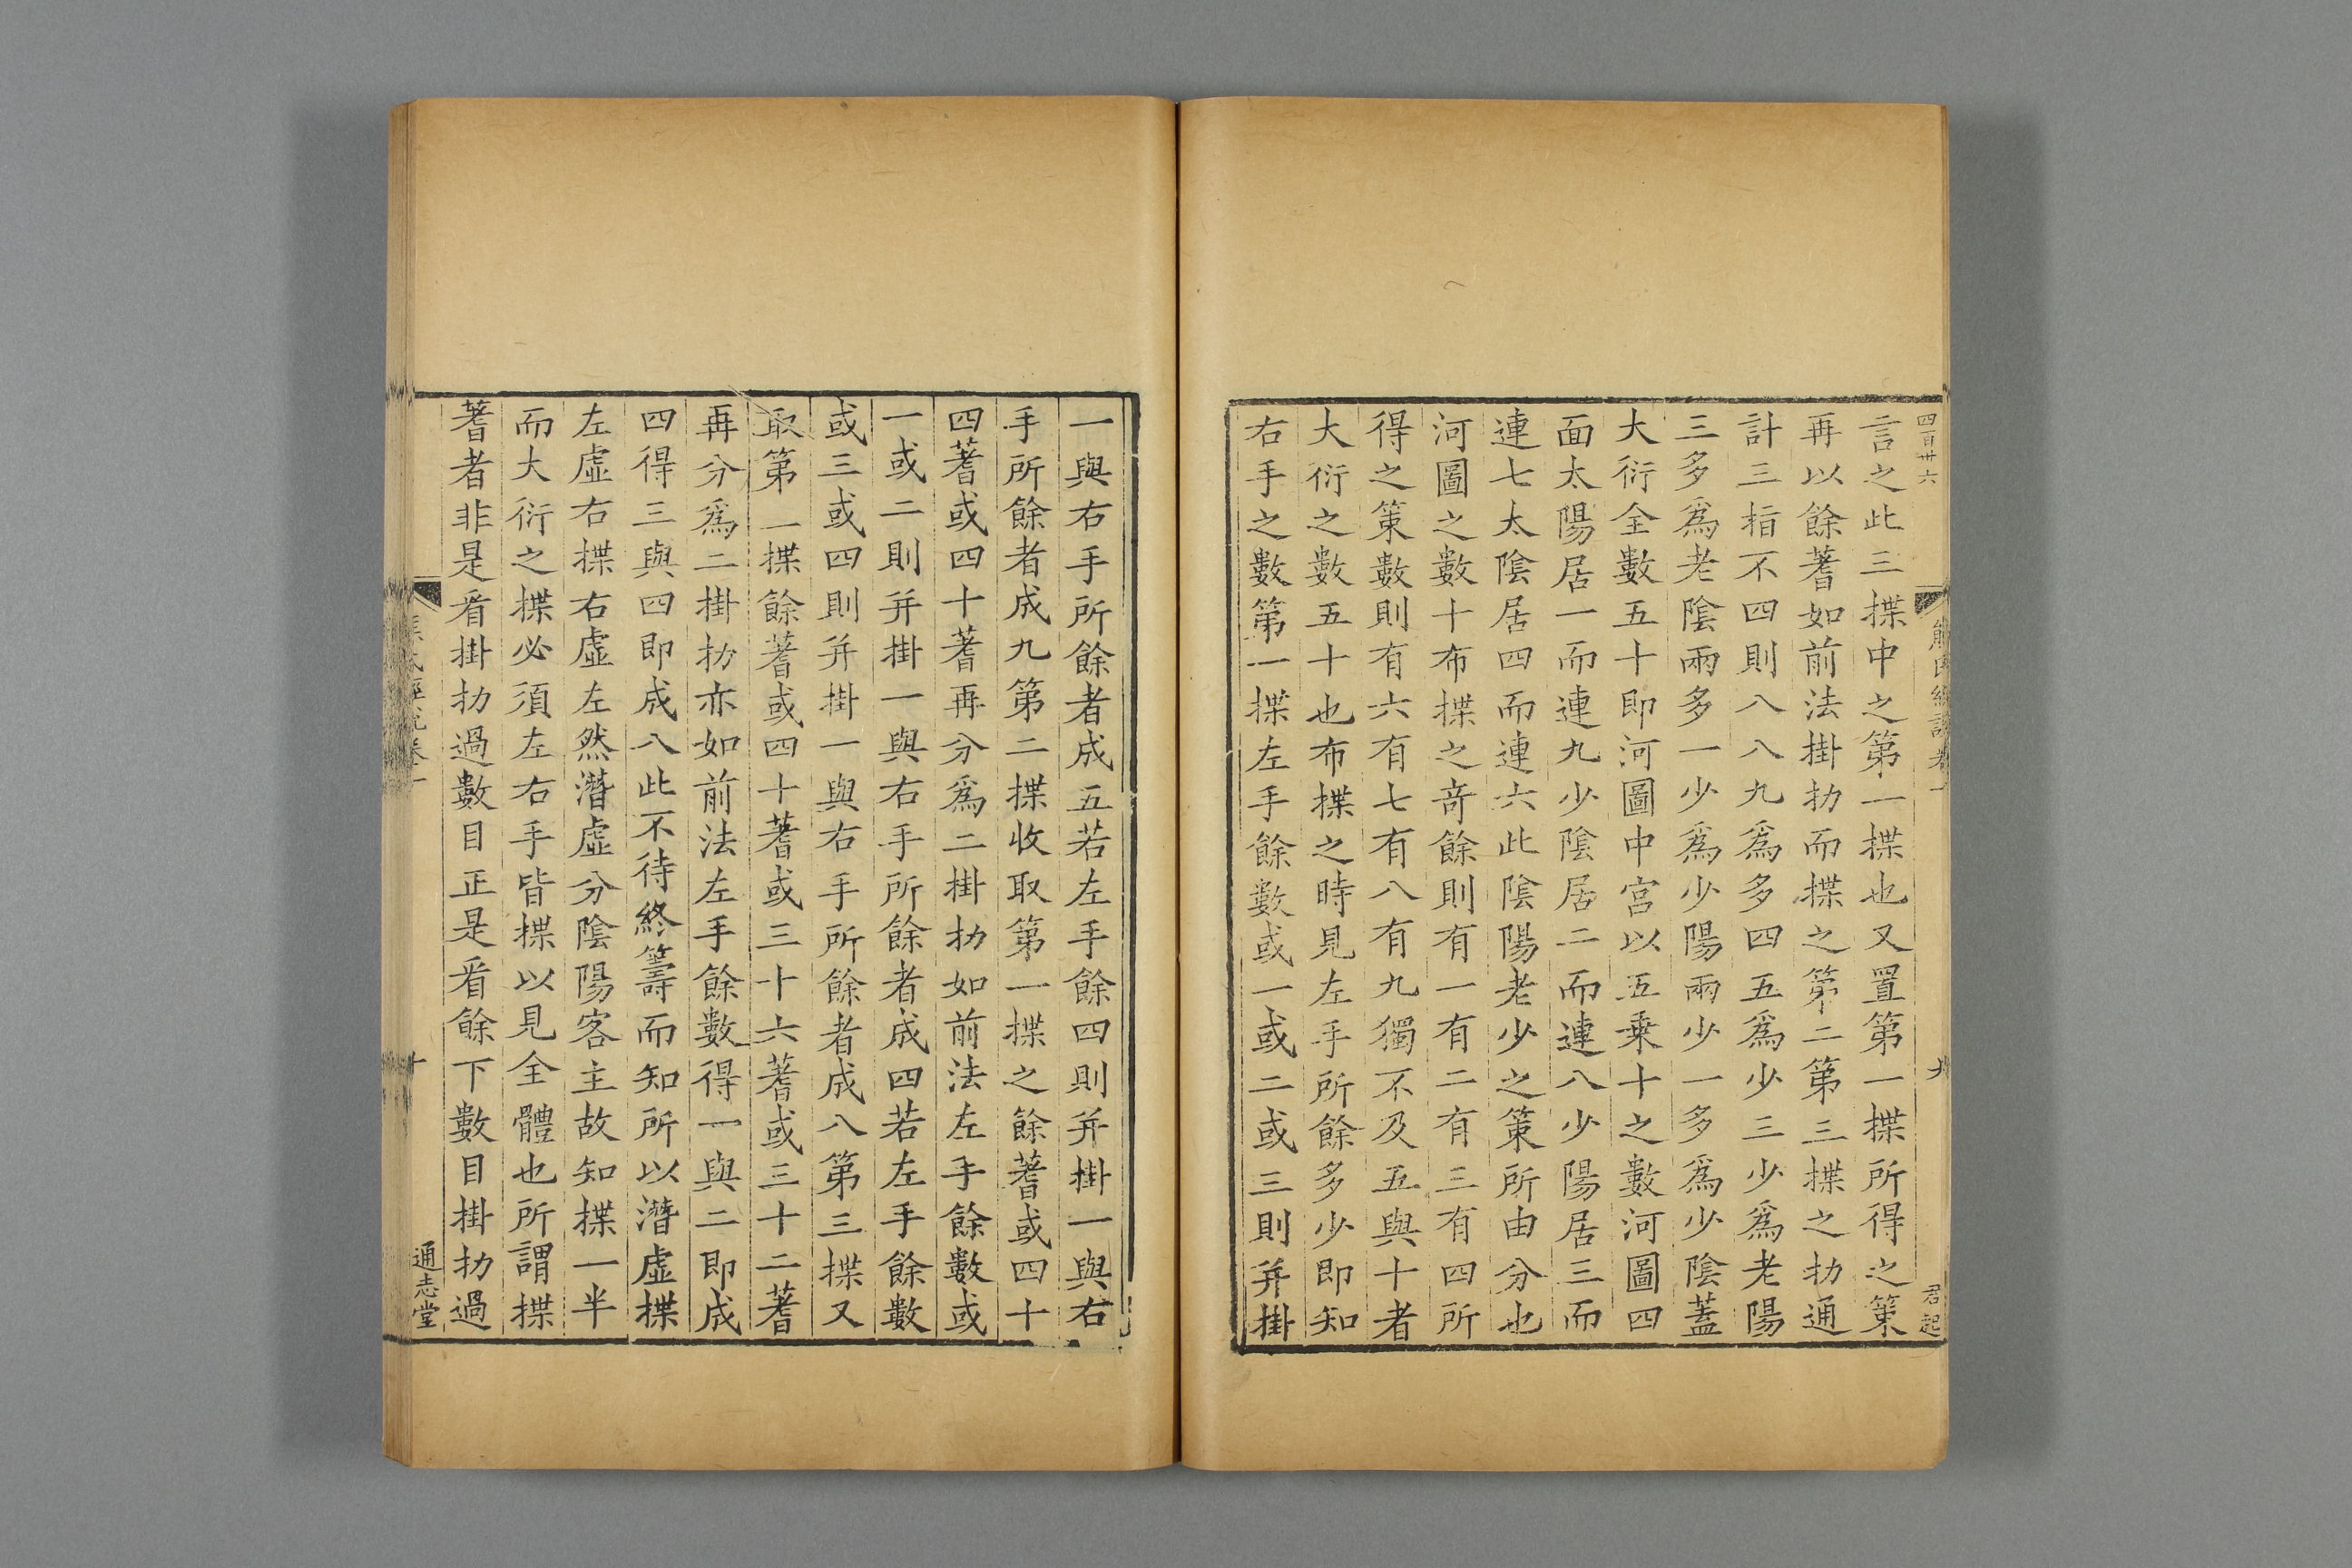 四百廿六
熊氏經說卷一
九
君起
言之此三揲中之第一揲也又置第一揲所得之策
再以餘蓍如前法掛扐而揲之第二第三揲之扐通
計三指不四則八八九爲多四五爲少三少爲老陽
三多爲老陰兩多一少爲少陽兩少一多爲少陰蓋
大衍全數五十即河圖中宮以五乗十之數河圖四
面太陽居一而連九少陰居二而連八少陽居三而
連七太陰居四而連六此陰陽老少之策所由分也
河圖之數十布揲之竒餘則有一有二有三有四所
得之策數則有六有七有八有九獨不及五與十者
大衍之數五十也布揲之時見左手所餘多少即知
右手之數第一揲左手餘數或一或二或三則并掛
一與右手所餘者成五若左手餘四則并掛一與右
手所餘者成九第二揲收取第一揲之餘蓍或四十
四蓍或四十蓍再分爲二掛扐如前法左手餘數或
一或二則并掛一與右手所餘者成四若左手餘數
或三或四則并掛一與右手所餘者成八第三揲又
取第一揲餘蓍或四十蓍或三十六蓍或三十二蓍
再分爲二掛扐亦如前法左手餘數得一與二即成
四得三與四即成八此不待終籌而知所以潛虛揲
左虛右揲右虛左然潛虛分陰陽客主故知揲一半
而大衍之揲必須左右手皆揲以見全體也所謂揲
蓍者非是看掛扐過數目正是看餘下數目掛扐過
十
通志堂